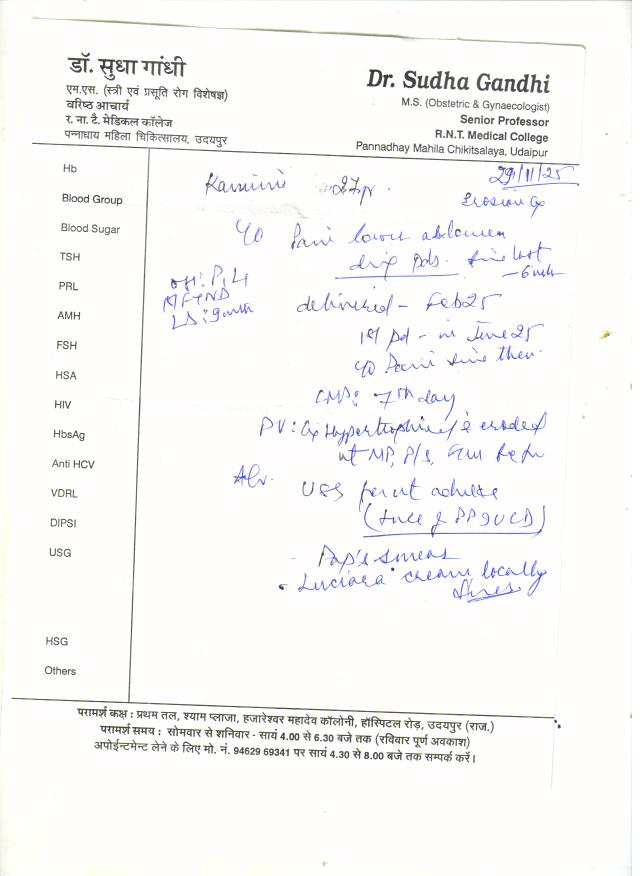 डॉ. सुधा गांधी
एम.एस. (स्त्री एवं प्रसूति रोग विशेषज्ञ)
वरिष्ठ आचार्य
र. ना. टै. मेडिकल कॉलेज
पन्नाधाय महिला चिकित्सालय, उदयपुर
Dr. Sudha Gandhi
M.S. (Obstetric & Gynaecologist)
Senior Professor
R.N.T. Medical College
Pannadhay Mahila Chikitsalaya, Udaipur
Hb
Blood Group
Blood Sugar
TSH
PRL
AMH
FSH
HSA
HIV
HbsAg
Anti HCV
VDRL
DIPSI
USG
HSG
Others
29/11/25
27yr.
Erosion Cx
c/o Pain lower abdomen
since last
P1L1
FTND
delivered - Feb 25
1st pd - in June 25
c/o Pain since then.
LMP: 7th day
PV: Cx Hypertrophied c eroded
Adv.
(PPIUCD)
- Pap's smear
- cream locally
परामर्श कक्ष : प्रथम तल, श्याम प्लाजा, हजारेश्वर महादेव कॉलोनी, हॉस्पिटल रोड़, उदयपुर (राज.)
परामर्श समय : सोमवार से शनिवार - सायं 4.00 से 6.30 बजे तक (रविवार पूर्ण अवकाश)
अपोईन्टमेन्ट लेने के लिए मो. नं. 94629 69341 पर सायं 4.30 से 8.00 बजे तक सम्पर्क करें।